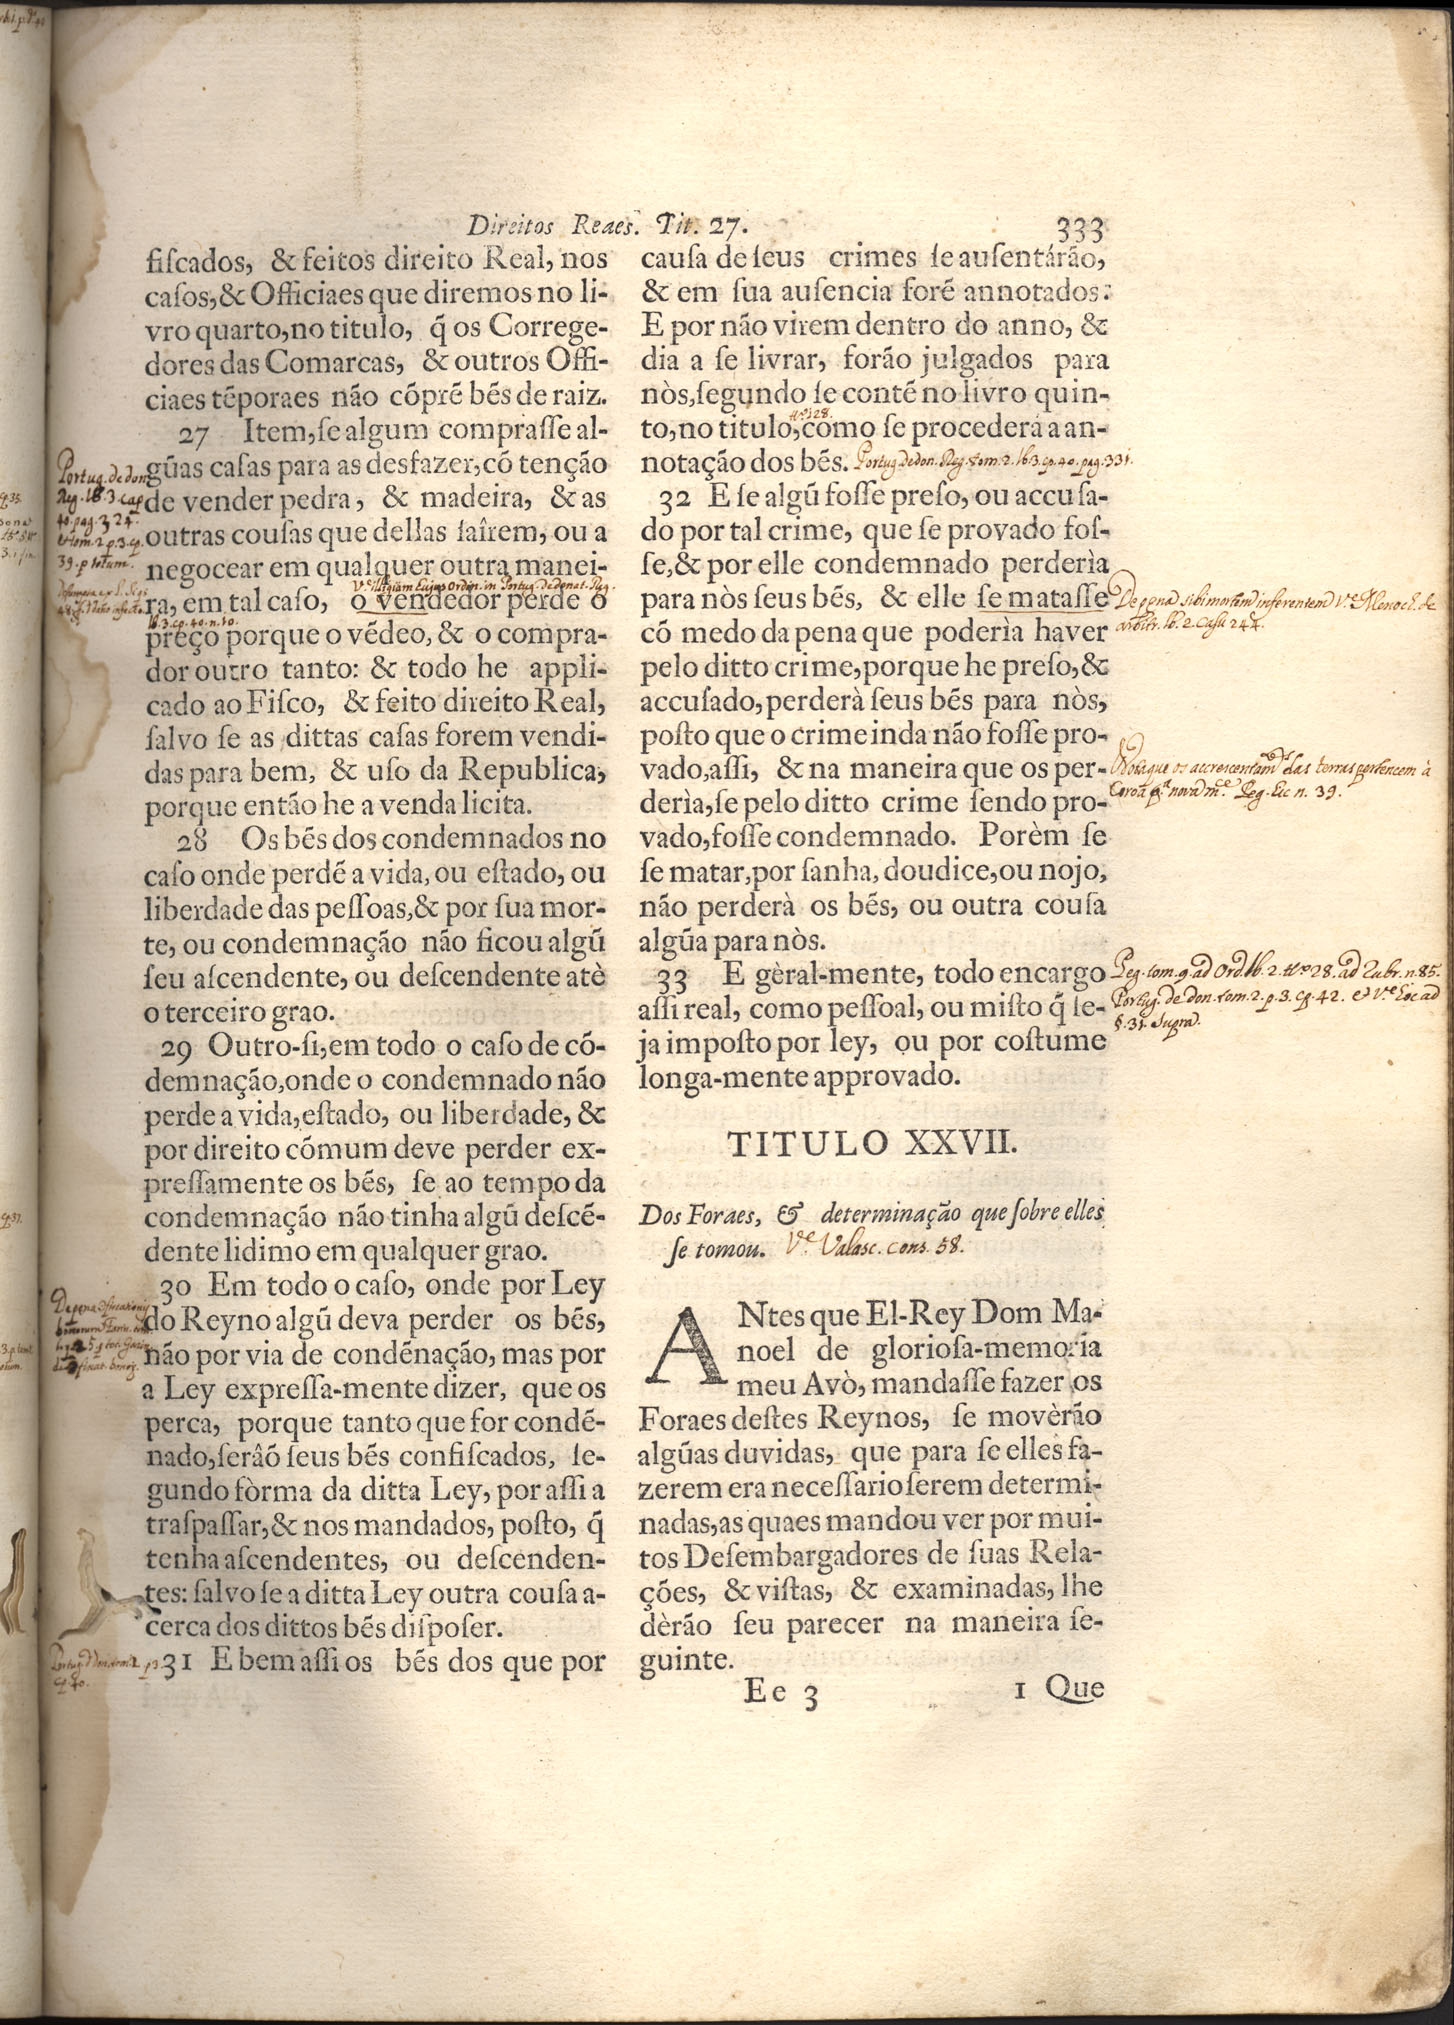 Direitos Reaes. Tit. 27. 333
fiſcados, & feitos direito Real, nos
caſos, & Officiaes que diremos no li-
vro quarto, no titulo, q̃ os Correge-
dores das Comarcas, & outros Offi-
ciaes tẽporaes não cõprẽ bẽs de raiz.
27 Item, ſe algum compraſſe al-
gũas caſas para as desfazer, cõ tenção
de vender pedra, & madeira, & as
outras couſas que dellas ſaîrem, ou a
negocear em qualquer outra manei-
ra, em tal caſo, o vendedor perde o
preço porque o vẽdeo, & o compra-
dor outro tanto: & todo he appli-
cado ao Fiſco, & feito direito Real,
ſalvo ſe as dittas caſas forem vendi-
das para bem, & uſo da Republica,
porque então he a venda licita.
28 Os bẽs dos condemnados no
caſo onde perdẽ a vida, ou eſtado, ou
liberdade das peſſoas, & por ſua mor-
te, ou condemnação não ficou algũ
ſeu aſcendente, ou deſcendente atè
o terceiro grao.
29 Outro-ſi, em todo o caſo de cõ-
demnação, onde o condemnado não
perde a vida, eſtado, ou liberdade, &
por direito cõmum deve perder ex-
preſſamente os bẽs, ſe ao tempo da
condemnação não tinha algũ deſcẽ-
dente lidimo em qualquer grao.
30 Em todo o caſo, onde por Ley
do Reyno algũ deva perder os bẽs,
não por via de condẽnação, mas por
a Ley expreſſa-mente dizer, que os
perca, porque tanto que for condẽ-
nado, ſerâõ ſeus bẽs confiſcados, ſe-
gundo fòrma da ditta Ley, por aſſi a
traſpaſſar, & nos mandados, poſto, q̃
tenha aſcendentes, ou deſcenden-
tes: ſalvo ſe a ditta Ley outra couſa a-
cerca dos dittos bẽs diſpoſer.
31 E bem aſſi os bẽs dos que por
Portug. de don.
Reg. lb. 3. cap
40. pag. 324.
et tom. 2 p. 3. cp.
39. p totum.
lb. 3. cp. 40. n. 10.
cauſa de ſeus crimes ſe auſentárão,
& em ſua auſencia forẽ annotados:
E por não virem dentro do anno, &
dia a ſe livrar, forão julgados para
nòs, ſegundo ſe contẽ no livro quin-
tto 128.
to, no titulo, como ſe procederá a an-
notação dos bẽs. Portug. de don. Reg. tom. 2. lb. 3. cp. 40. pag. 331.
32 E ſe algũ foſſe preſo, ou accuſa-
do por tal crime, que ſe provado foſ-
ſe, & por elle condemnado perderìa
para nòs ſeus bẽs, & elle ſe mataſſe
cõ medo da pena que poderìa haver
pelo ditto crime, porque he preſo, &
accuſado, perderà ſeus bẽs para nòs,
poſto que o crime inda não foſſe pro-
vado, aſſi, & na maneira que os per-
derìa, ſe pelo ditto crime ſendo pro-
vado, foſſe condemnado. Porèm ſe
ſe matar, por ſanha, doudice, ou nojo,
não perderà os bẽs, ou outra couſa
algũa para nòs.
33 E gèral-mente, todo encargo
aſſi real, como peſſoal, ou miſto q̃ ſe-
ja impoſto por ley, ou por coſtume
longa-mente approvado.
TITULO XXVII.
Dos Foraes, & determinação que ſobre elles
ſe tomou. V.e Valasc. cons. 58.
ANtes que El-Rey Dom Ma-
noel de glorioſa-memoria
meu Avò, mandaſſe fazer os
Foraes deſtes Reynos, ſe movèrão
algũas duvidas, que para ſe elles fa-
zerem era neceſſario ſerem determi-
nadas, as quaes mandou ver por mui-
tos Deſembargadores de ſuas Rela-
ções, & viſtas, & examinadas, lhe
dèrão ſeu parecer na maneira ſe-
guinte.
Ee 3 1 Que
De pena sibi mortem inferentem V.e Menoch. de
arbitr. lb. 2. casu 244.
Nota que os accrescentam.tos das terras pertencem à
Coroa p.a nova m.ce Peg. hic n. 39.
Peg. tom. 9. ad Ord. lb. 2. tto 28. ad Rubr. n. 85.
Portug. de don. tom. 2. p. 3. cp. 42. et V.e hic ad
§. 31. supra.